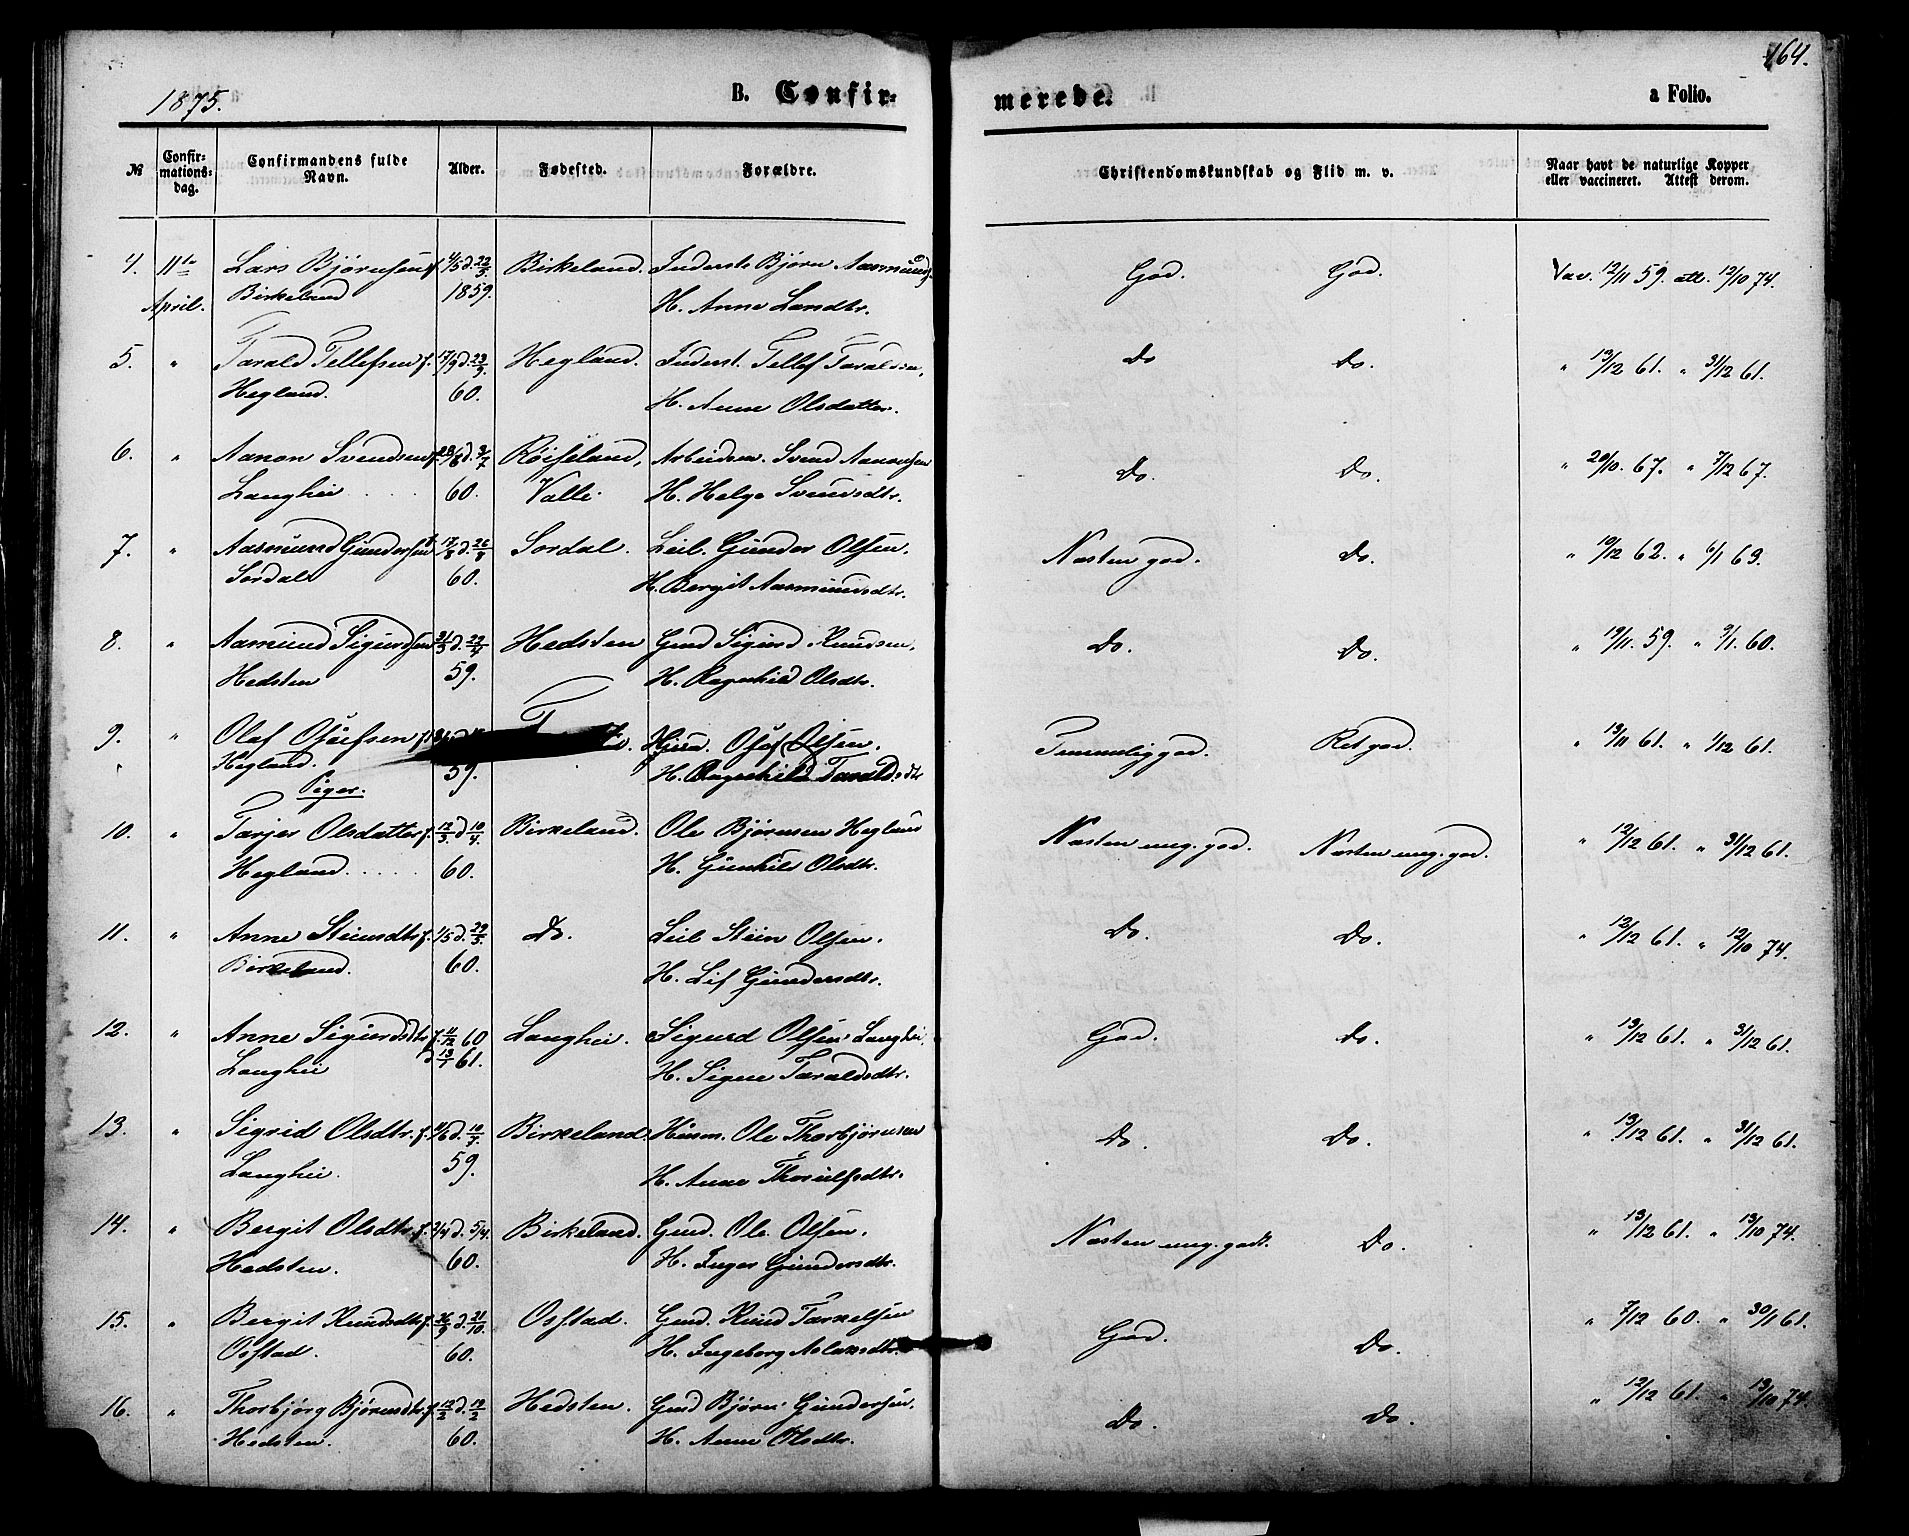 164.
1875.
B. Confir-
merede.
a Folio.
№
Confir-
mations-
dag.
Confirmandens fulde
Navn.
Alder.
Fødested.
Forældre.
Christendomskundskab og Flid m. v.
Naar havt de naturlige Kopper
eller vaccineret. Attest derom.
4. 11te Lars Bjørnsen f. 4/5 d. 22/5 Birkeland. Inderst Bjørn Aasmunds. God. God. Vac. 12/11 59. att. 12/10 74.
April. Birkeland 1859. H. Anne Larsdtr.
5. " Tarald Tellefsen f. 17/9 d. 23/9 Hegland. Inderst. Tellef Taraldsen, Do Do. " 13/12 61. " 31/12 61.
Hegland. 60. H. Anne Olsdatter.
6. " Aanon Svendsen f. 28/6 d. 3/7 Røiseland, Arbeidsm. Svend Aanonsen Do. Do. " 20/10. 67. " 7/12 67.
Langhei 60. Valle. H. Helge Svendsdtr.
7. " Aasmund Gundersen f. 17/8 d. 26/8 Sordal. Leil. Gunder Olsen. Næsten god. Do. " 19/12 62. " 6/1 69.
Sordal 60. H. Bergit Aasmundsdtr.
8. " Aasmund Sigurdsen 31/3 d. 22/4 Hedsten Gmd Sigurd Knudsen, Do. Do. " 19/11. 59. " 9/1. 60.
Hedsten 59. H. Ragnhild Olsdtr.
9. " Olaf Olufsen f. Oluf Olsen. Temmelig god. Ret god. " 13/11 61. " 1/12 61.
Hegland. 59. H. Ragnhild Taraldsdtr
Piger.
10. " Tarjer Olsdatter f. 12/3. d. 10/4. Birkeland. Ole Bjørnsen Hegland Næsten meg. god. Næsten meg. god. " 12/12 61. " 31/12 61.
Hegland 60. H. Gunhild Olsdtr.
11. " Anne Steinsdtr f. 1/5 d. 29/5. Do. Leil Stein Olsen. Do. Do. " 12/12 61. " 12/10 74.
Birkeland. 60. H. Lif Gundersdtr.
12. " Anne Sigurdsdtr f. 11/12 60 Langhei. Sigurd Olsen Langhei, God. Do. " 13/12 61. " 31/12 61.
Langhei d 13/1 61. H. Signe Taraldsdtr.
13. " Sigrid Olsdtr. f. 11/6 d. 10/7. Birkeland. Husm. Ole Thorbjørnsen Do. Do. " 13/12 61. " 31/12 61.
Langhei. 59. H. Anne Thorulfsdtr.
14. " Bergit Olsdtr. f. 2/4 d. 5/4. Birkeland. Gmd. Ole Olsen. Næsten meg. godt. Do. " 13/12 61. " 13/10 74.
Hedsten. 60. H. Inger Gundersdtr.
15. " Bergit Knudsdtr f. 26/9 d. 21/10. Ostad. Gmd. Knud Tarkelsen God. Do. " 7/12 60. " 30/1 61.
Ostad. 60. H. Ingeborg Aslaksdtr.
16. " Thorbjørg Bjørnsdtr. f. 12/2 d. 19/2 Hedsten. Gmd Bjørn Gundersen. Do. Do. " 12/12 61. " 13/10 74.
Hedsten. 60. H. Anne Olsdtr.